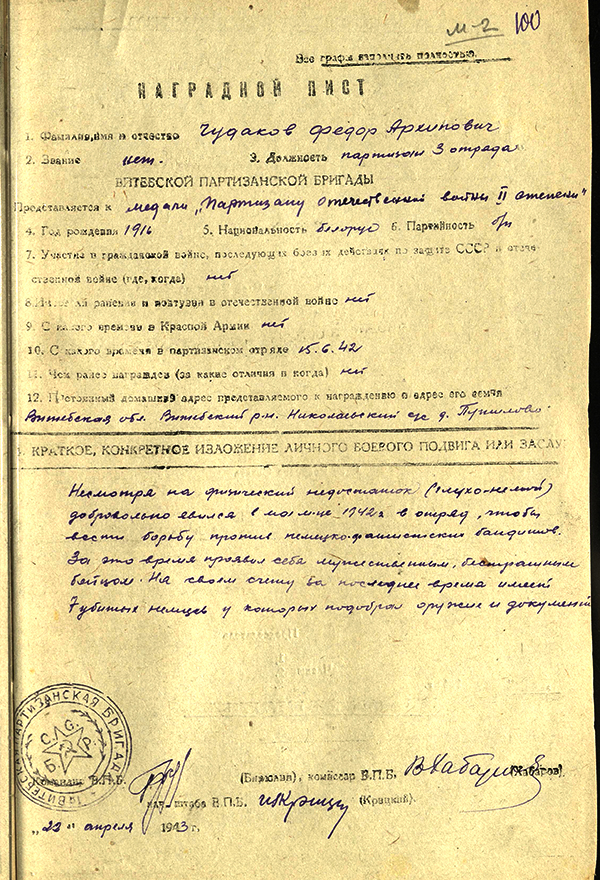 М-2 100
Все графы заполнить полностью.
НАГРАДНОЙ ЛИСТ
1. Фамилия, имя и отчество Чудаков Федор Архипович
2. Звание нет. 3. Должность партизан 3 отряда
ВИТЕБСКОЙ ПАРТИЗАНСКОЙ БРИГАДЫ
Представляется к медали „Партизану Отечественной войны II степени"
4. Год рождения 1916 5. Национальность белорус 6. Партийность б/п
7. Участие в гражданской войне, последующих боевых действиях по защите СССР и отече-
ственной войне (где, когда) нет
8. ранения и контузии в отечественной войне нет
9. С какого времени в Красной Армии нет
10. С какого времени в партизанском отряде 15.6.42
11. Чем ранее награжден (за какие отличия и когда) нет
12. Постоянный домашний адрес представляемого к награждению и адрес его семьи
Витебская обл. Витебский р-н. Николаевский с/с д.
КРАТКОЕ, КОНКРЕТНОЕ ИЗЛОЖЕНИЕ ЛИЧНОГО БОЕВОГО ПОДВИГА ИЛИ ЗАСЛУ
Несмотря на физический недостаток (глухо-немой)
добровольно явился в м-це 1942 г. в отряд, чтобы
вести борьбу против немецко-фашистских бандитов.
За это время проявил себя мужественным, бесстрашным
бойцом. На своем счету за последнее время имеет
7 убитых немцев у которых подобрал оружие и документы
ВИТЕБСКАЯ ПАРТИЗАНСКАЯ БРИГАДА
Б.
Командир В.П.Б. (Бирюлин), комиссар В.П.Б. В Хабаров (Хабаров).
нач. штаба В.П.Б. (Крицкий).
„22" апреля 1943 г.